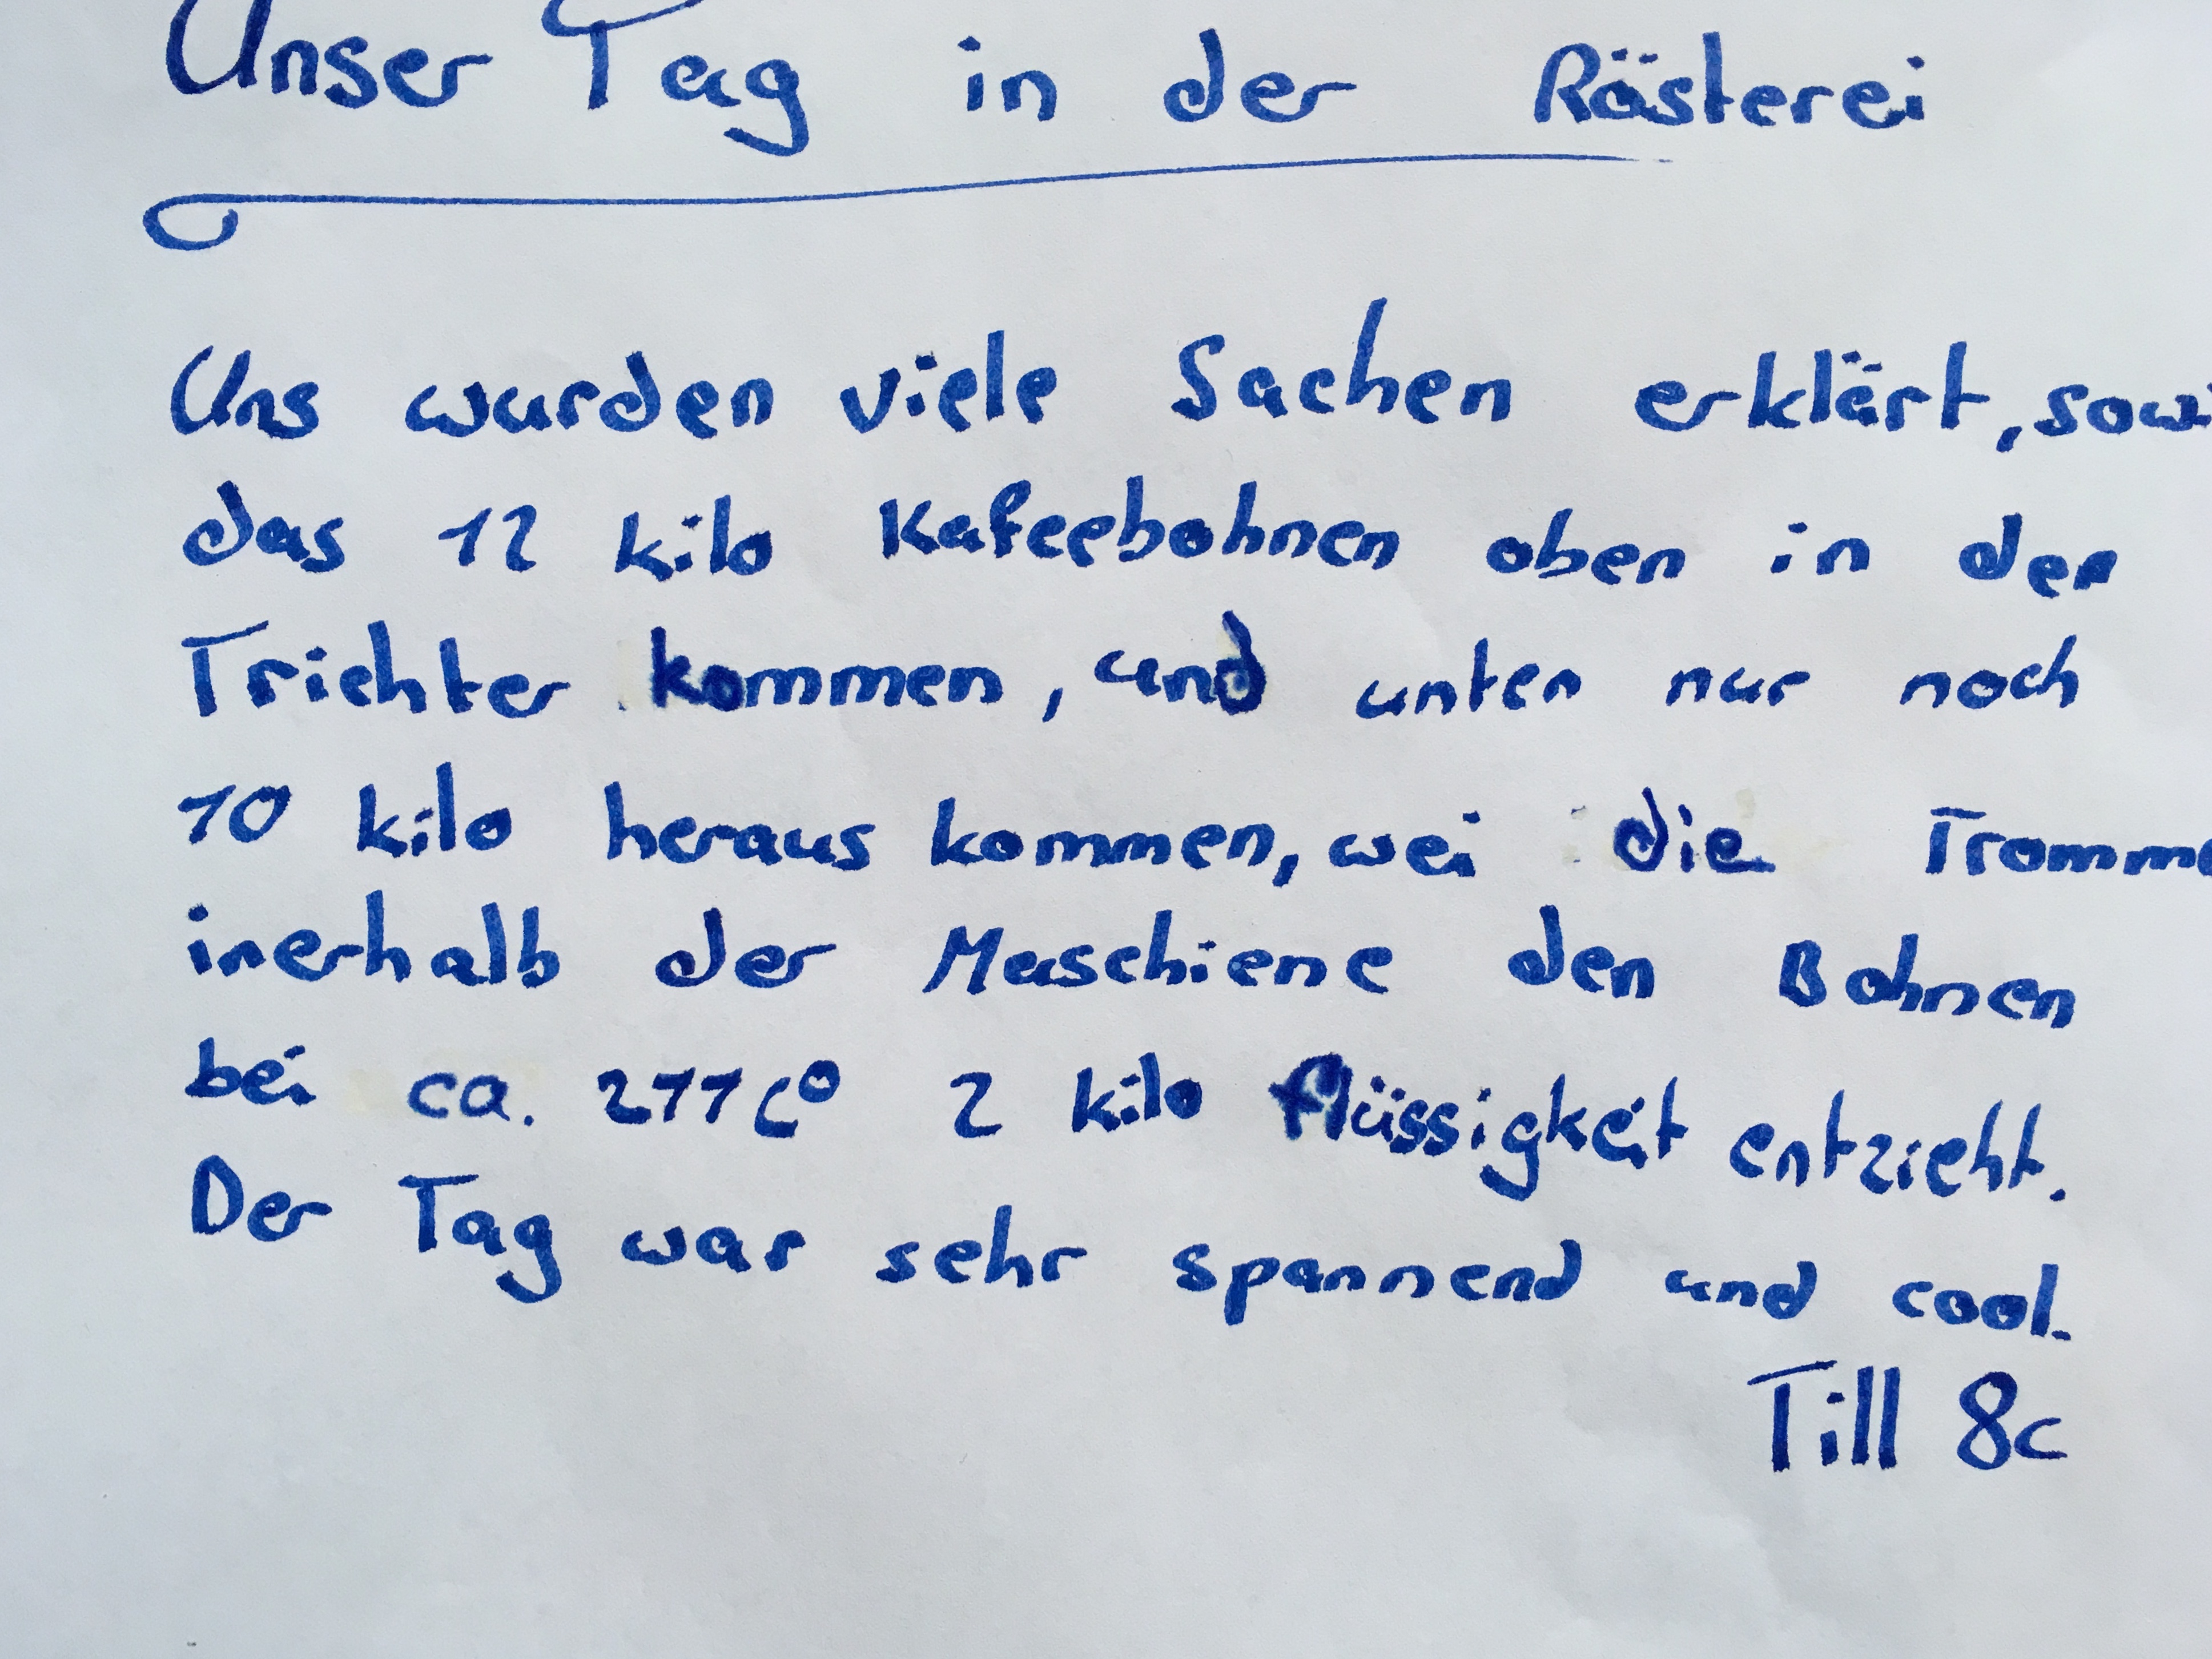 Unser Tag in der Rösterei
Uns wurden viele Sachen erklärt, sowi
das 12 kilo Kafeebohnen oben in den
Trichter kommen, und unten nur noch
10 kilo heraus kommen, wei die Tromme
inerhalb der Maschiene den Bohnen
bei ca. 211C° 2 kilo flüssigkeit entzieht.
Der Tag war sehr spannend und cool.
Till 8c